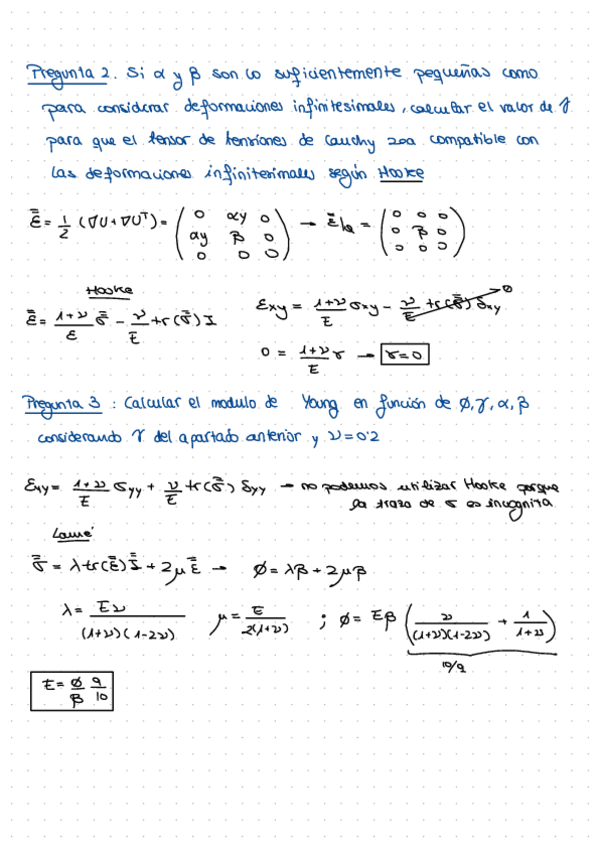 Pregunta 2. Si α y β son lo suficientemente pequeñas como
para considerar deformaciones infinitesimales, calcular el valor de γ
para que el tensor de tensiones de Cauchy sea compatible con
las deformaciones infinitesimales según Hooke
ε̿ = 1/2 (∇U + ∇Uᵀ) = (0 αy 0; αy β 0; 0 0 0) → ε̿|Q = (0 0 0; 0 β 0; 0 0 0)
Hooke
ε̿ = 1+ν/E σ̿ - ν/E tr(σ̿) I
εxy = 1+ν/E σxy - ν/E tr(σ̿) δxy → 0
0 = 1+ν/E γ → γ=0
Pregunta 3 : Calcular el modulo de Young en función de ϕ, γ, α, β
considerando γ del apartado anterior y ν=0.2
εyy = 1+ν/E σyy + ν/E tr(σ̿) δyy → no podemos utilizar Hooke porque
la traza de σ es incognita.
Lamé
σ̿ = λ tr(ε̿) I̿ + 2μ ε̿ → ϕ = λβ + 2μβ
λ = Eν/(1+ν)(1-2ν) μ = E/2(1+ν) ; ϕ = Eβ (ν/(1+ν)(1-2ν) + 1/1+ν)
10/9
E = ϕ/β 9/10